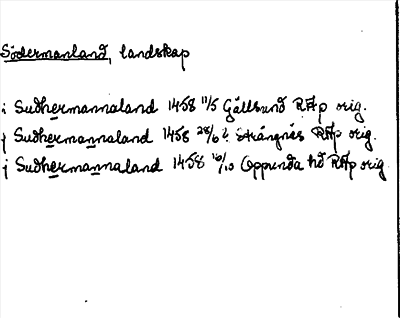 Södermanland, landskap
i Sudhermannaland 1458 11/5 Gällsund RAp orig.
j Sudhermannaland 1458 28/6 Strängnäs RAp orig.
j Sudhermannaland 1458 16/10 Oppunda hd RAp orig